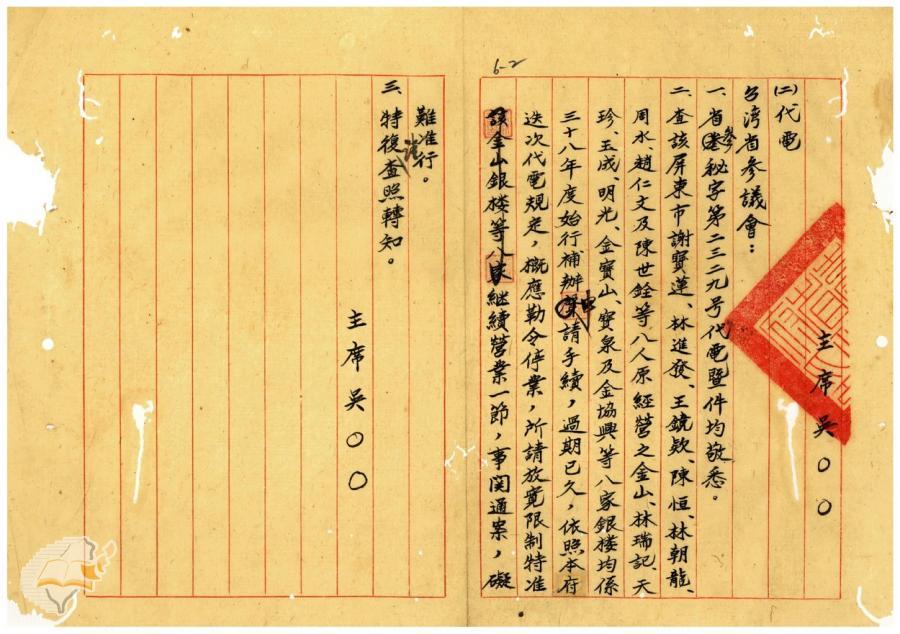 6-2
主席吳〇〇
(二)代電
台湾省參議會：
一、省參秘字第二三二九号代電暨件均敬悉。
二、查該屏東市謝寶蓮、林進發、王鏡欽、陳恒、林朝龍、
周水、趙仁文及陳世銓等八人原經營之金山、林瑞記、天
珍、玉成、明光、金寶山、寶泉及金協興等八家銀楼均係
三十八年度始行補辦申請手續，過期已久，依照本府
迭次代電規定，概應勒令停業，所請放寬限制特准
該金山銀楼等八家継續營業一節，事関通案，礙
難准行。
三、特復請查照轉知。
主席吳〇〇